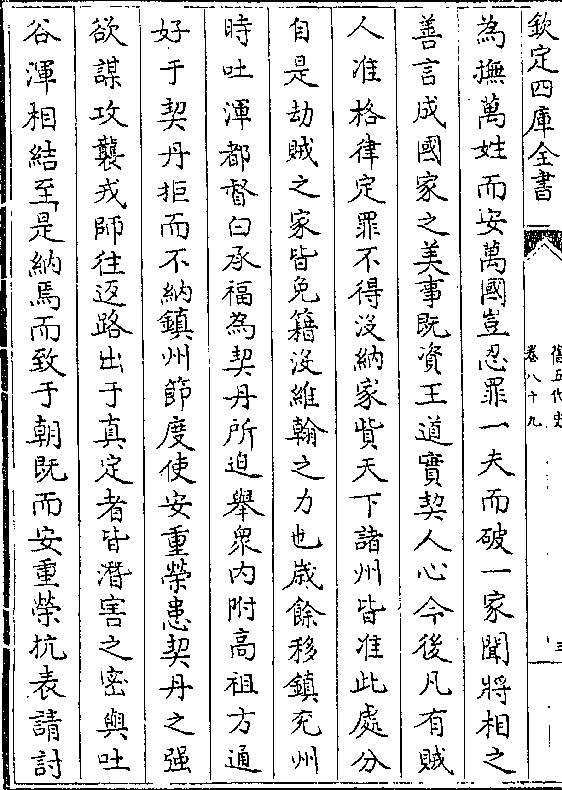 欽定四庫全書
舊五代史
卷八十九
三
為撫萬姓而安萬國豈忍罪一夫而破一家聞將相之
善言成國家之美事既資王道實契人心今後凡有賊
人准格律定罪不得没納家貲天下諸州皆准此處分
自是劫賊之家皆免籍没維翰之力也歳餘移鎮兖州
時吐渾都督白承福為契丹所迫舉衆内附高祖方通
好于契丹拒而不納鎮州節度使安重榮患契丹之强
欲謀攻襲戎師往返路出于真定者皆潛害之密與吐
谷渾相結至是納焉而致于朝既而安重榮抗表請討